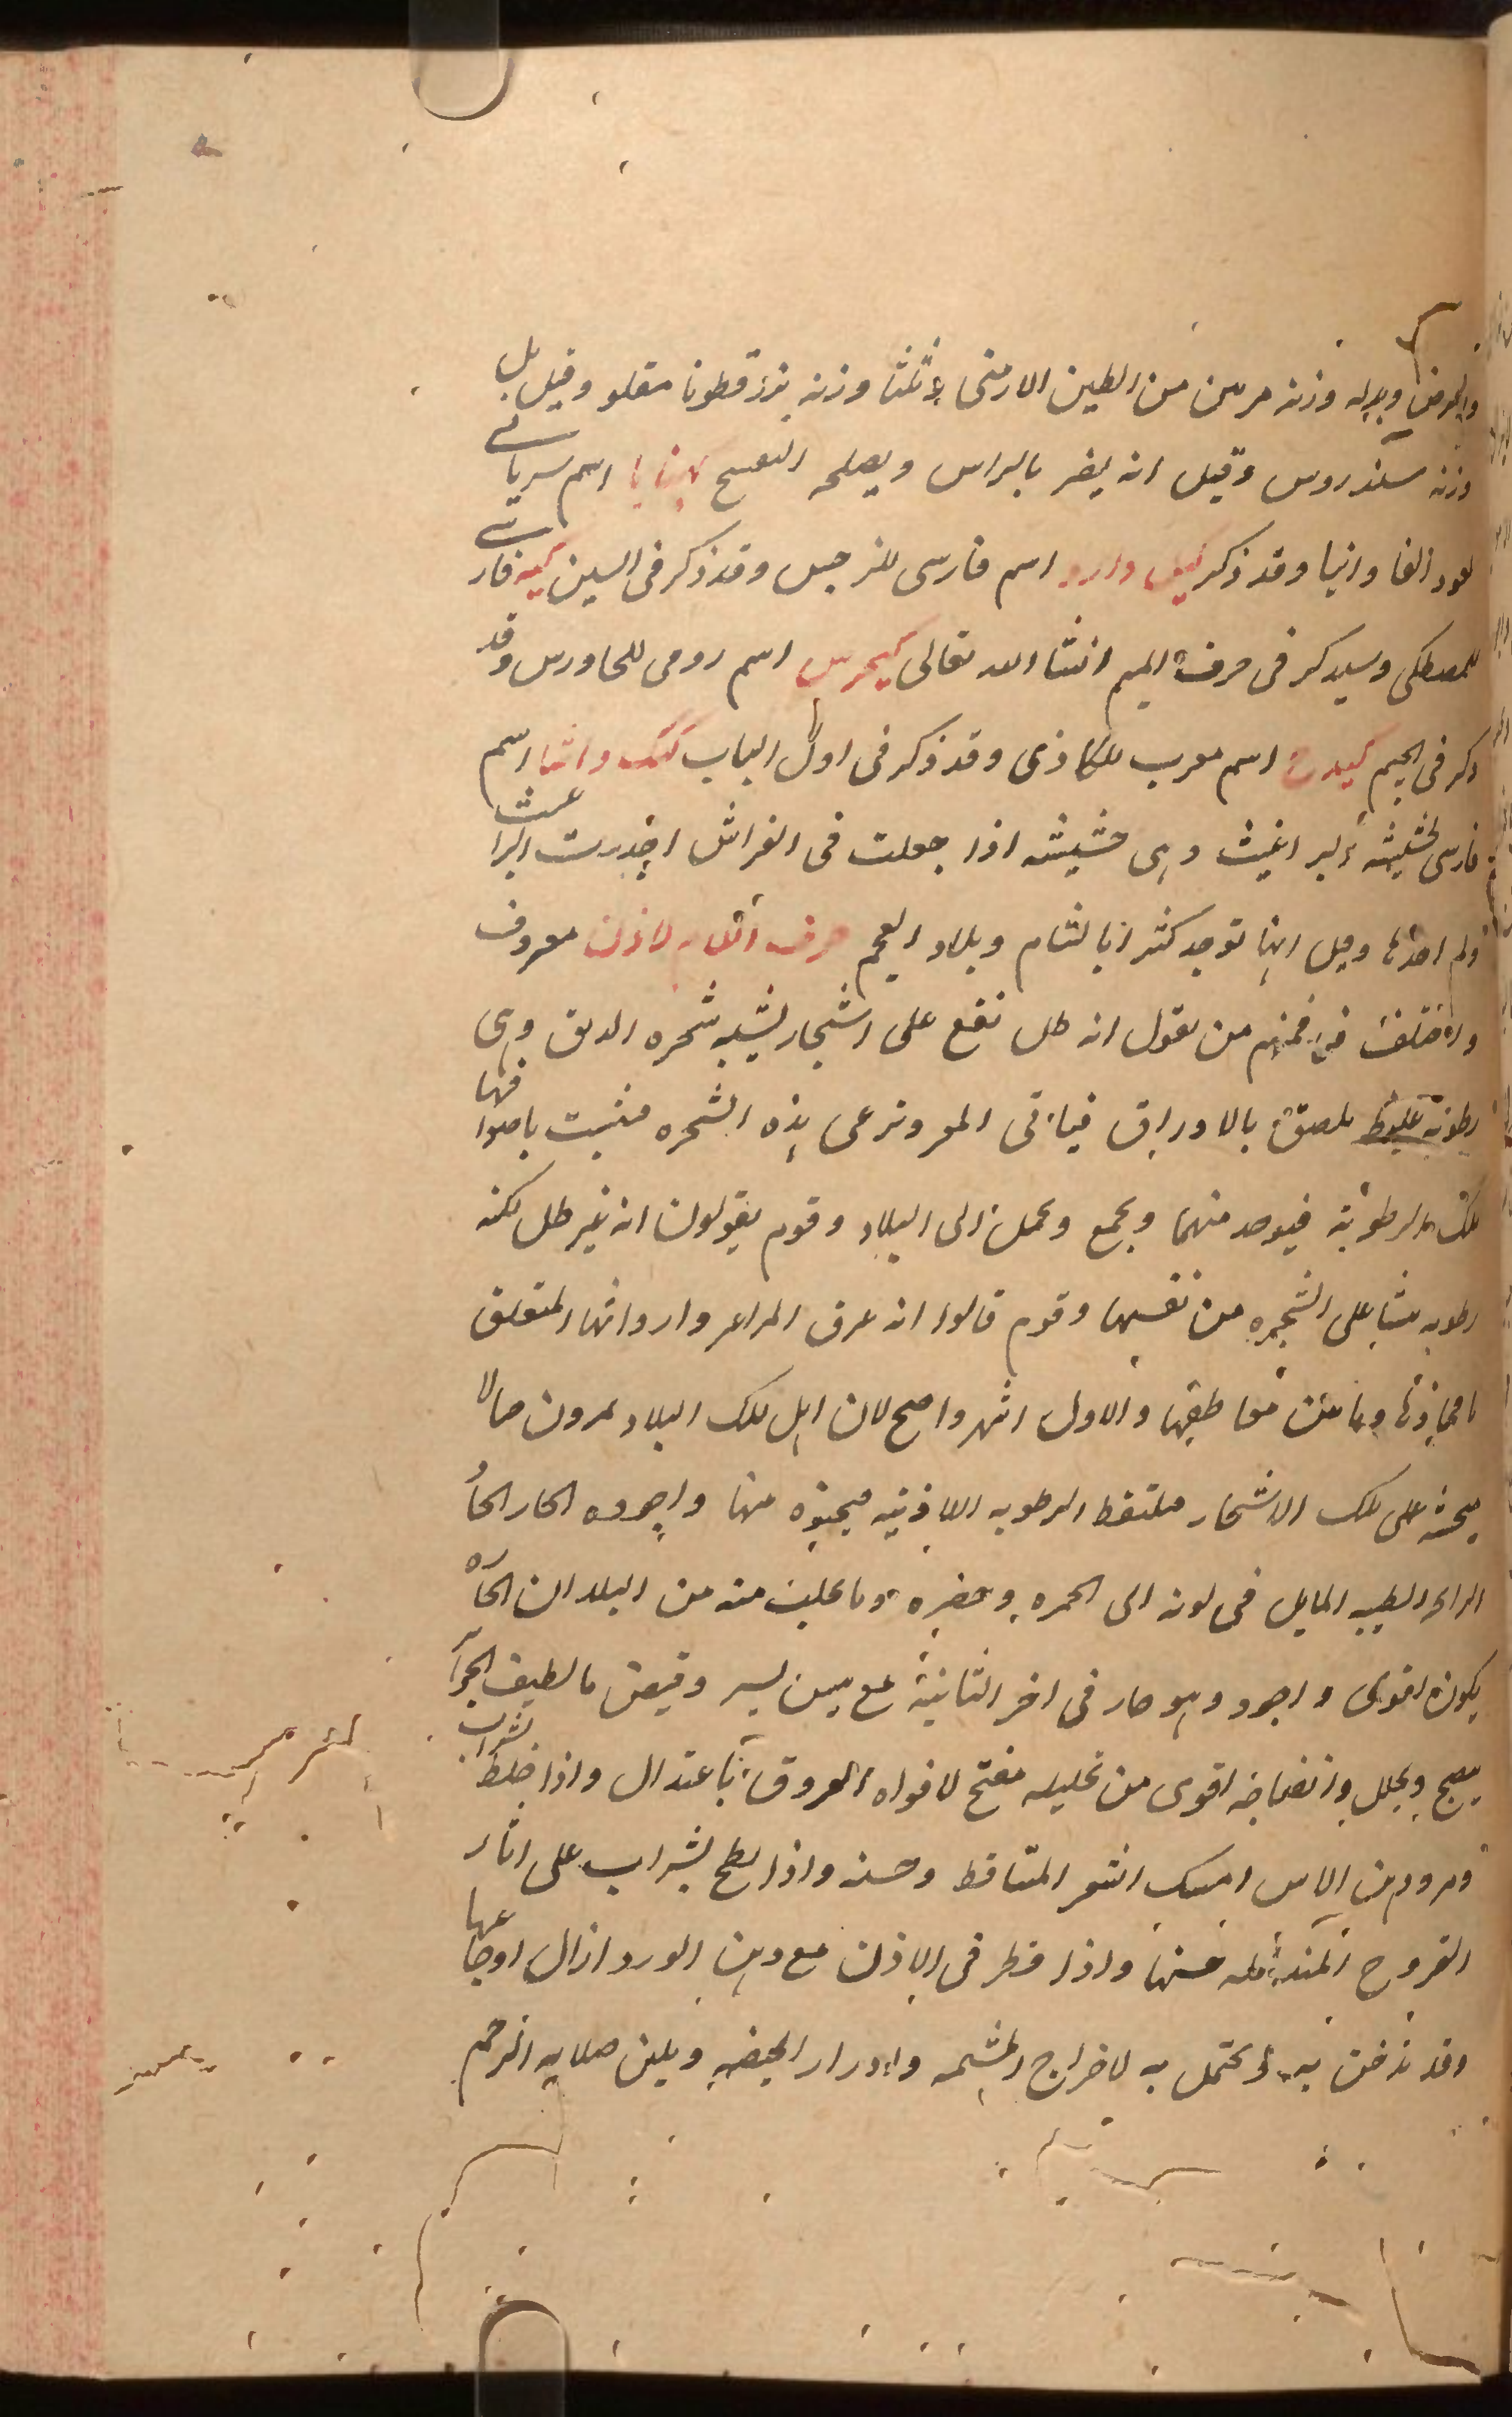 والعرض وبدله وزنه مرتين من الطين الارمنى وثلثا وزنه بزرقطونا مقلو وقيل بل
وزنه سندروس وقيل انه يضر بالراس ويصلحه البنفسج كهيانا اسم سريانى
لعود الفاوانيا وقد ذكر كيل دارو اسم فارسى للسرخس وقد ذكر فى السين كيه فارسى
للمصطكى وسيذكر فى حرف الميم انشا الله تعالى كيجرس اسم رومى للجاورس وقد
ذكر فى الجيم كيدح اسم معرب للكاذى وقد ذكر فى اول الباب كيك واشا اسم
فارسى لحشيشة البراغيث وهى حشيشه اذا جعلت فى الفراش اخدرت البراغيث
ولم احدها وقيل انها توجد كثيرا بالشام وبلاد العجم حرف اللام لاذن معروف
واختلف فيه فمنهم من يقول انه طل يقع على اشجار تشبه شجره الدبق وهى
رطوبة غليظه ملصقة بالاوراق فياتى المعز وترعى هذه الشجره فتثبت باصوافها
تلك الرطوبة فيوخذ منها ويجمع ويحمل الى البلاد وقوم يقولون انه غير طل لكنه
رطوبه تنشا على الشجره من نفسها وقوم قالوا انه عرق المراعز وارواثها المتعلق
بافخاذها وما بين مغاطبها والاول اشهر واصح لان اهل تلك البلاد يمرون حبالا
محشه على تلك الاشجار فتلتقط الرطوبه اللاذنيه فيجبذه منها واجوده الحار الحاد
الرائحه الطيبه المايل فى لونه الى الحمره وخضره وما جلب منه من البلدان الحاره
يكون اقوى واجود وهو حار فى اخر الثانية مع يبس يسير وقبض ما لطيف الجرا
ينضج ويحلل وانضاجه اقوى من تحليله مفتح لافواه العروق باعتدال واذا خلط بشراب
ومر ودهن الاس امسك الشعر المتساقط وحسنه واذا لطخ بشراب على اثار
القروح المندمله حسنها واذا قطر فى الاذن مع دهن الورد ازال اوجاعها
وقد يدخن به ويحتمل به لاخراج المشيمه وادرار الحيضه ويلين صلابه الرحم